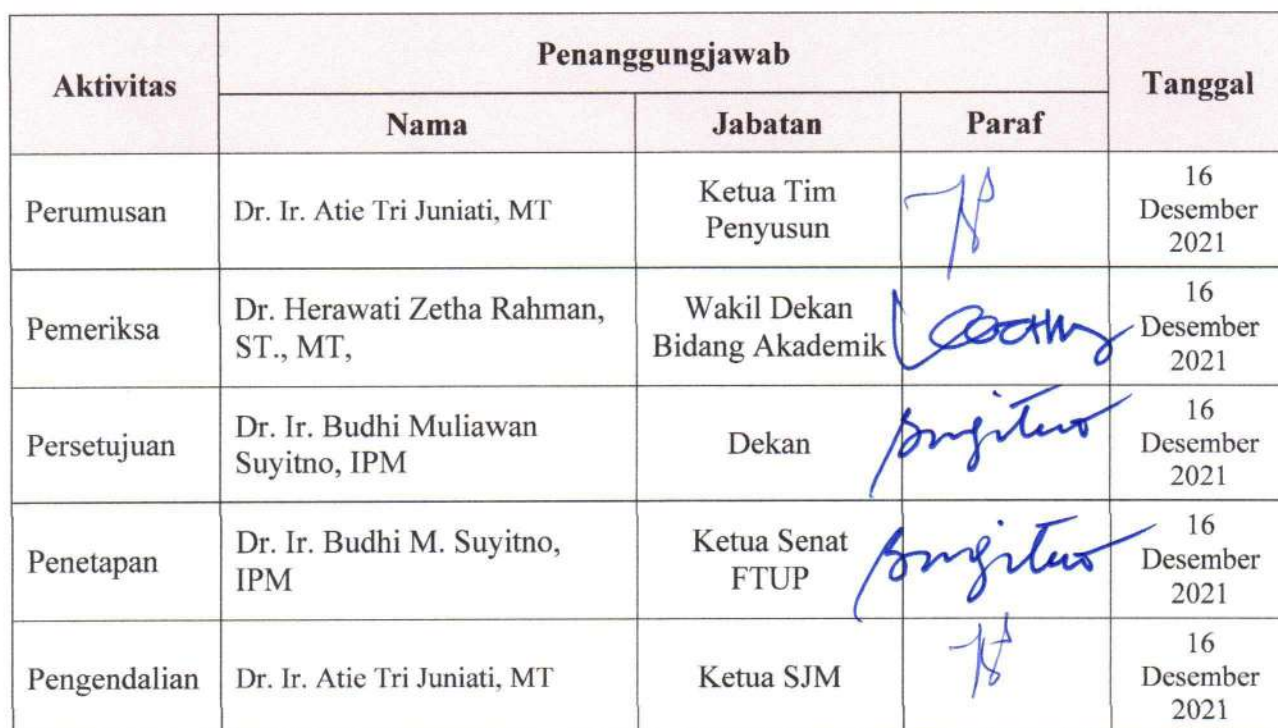 Aktivitas
Penanggungjawab
Tanggal
Nama
Jabatan
Paraf
Perumusan
Dr. Ir. Atie Tri Juniati, MT
Ketua Tim
Penyusun
16
Desember
2021
Pemeriksa
Dr. Herawati Zetha Rahman,
ST., MT,
Wakil Dekan
Bidang Akademik
16
Desember
2021
Persetujuan
Dr. Ir. Budhi Muliawan
Suyitno, IPM
Dekan
16
Desember
2021
Penetapan
Dr. Ir. Budhi M. Suyitno,
IPM
Ketua Senat
FTUP
16
Desember
2021
Pengendalian
Dr. Ir. Atie Tri Juniati, MT
Ketua SJM
16
Desember
2021